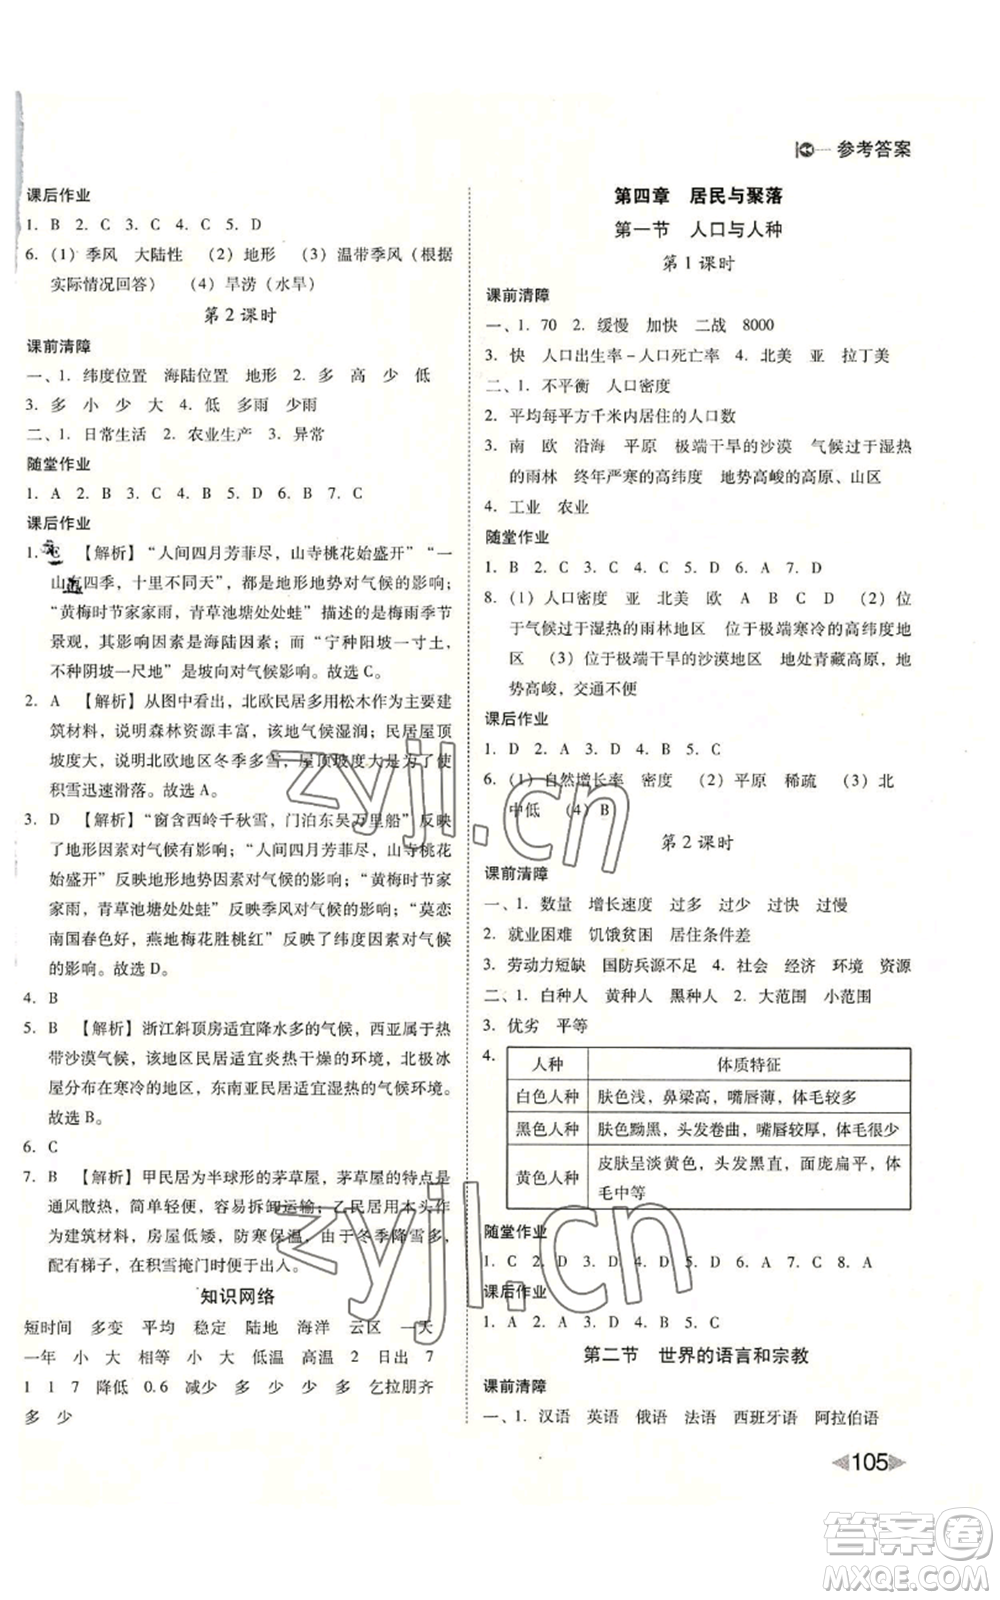 参考答案
课后作业
1. B 2. C 3. C 4. C 5. D
6.（1）季风 大陆性 （2）地形 （3）温带季风（根据
实际情况回答） （4）旱涝（水旱）
第 2 课时
课前清障
一、1. 纬度位置 海陆位置 地形 2. 多 高 少 低
3. 多 小 少 大 4. 低 多雨 少雨
二、1. 日常生活 2. 农业生产 3. 异常
随堂作业
1. A 2. B 3. C 4. C 5. D 6. B 7. C
课后作业
1. 【解析】“人间四月芳菲尽，山寺桃花始盛开”“一
山有四季，十里不同天”，都是地形地势对气候的影响；
“黄梅时节家家雨，青草池塘处处蛙”描述的是梅雨季节
景观，其影响因素是海陆因素；而“宁种阳坡一寸土，
不种阴坡一尺地”是坡向对气候影响。故选 C。
2. A 【解析】从图中看出，北欧民居多用松木作为主要建
筑材料，说明森林资源丰富，该地气候湿润；民居屋顶
坡度大，说明北欧地区冬季多雪，屋顶坡度大是为了使
积雪迅速滑落。故选 A。
3. D 【解析】“窗含西岭千秋雪，门泊东吴万里船”反映
了地形因素对气候有影响；“人间四月芳菲尽，山寺桃花
始盛开”反映地形地势因素对气候的影响；“黄梅时节家
家雨，青草池塘处处蛙”反映季风对气候的影响；“莫恋
南国春色好，燕地梅花胜桃红”反映了纬度因素对气候
的影响。故选 D。
4. B
5. B 【解析】浙江斜顶房适宜降水多的气候，西亚属于热
带沙漠气候，该地区民居适宜炎热干燥的环境，北极冰
屋分布在寒冷的地区，东南亚民居适宜湿热的气候环境。
故选 B。
6. C
7. B 【解析】甲民居为半球形的茅草屋，茅草屋的特点是
通风散热，简单轻便，容易拆卸运输；乙民居用木头作
为建筑材料，房屋低矮，防寒保温，由于冬季降雪多，
配有梯子，在积雪掩门时便于出人。
知识网络
短时间 多变 平均 稳定 陆地 海洋 云区 一天
一年 小 大 相等 小 大 低温 高温 2 日出 7
1 1 7 降低 0.6 减少 少 多 少 多 乞拉朋齐
多 少
第四章 居民与聚落
第一节 人口与人种
第 1 课时
课前清障
一、1. 70 2. 缓慢 加快 二战 8000
3. 快 人口出生率－人口死亡率 4. 北美 亚 拉丁美
二、1. 不平衡 人口密度
2. 平均每平方千米内居住的人口数
3. 南 欧 沿海 平原 极端干旱的沙漠 气候过于湿热
的雨林 终年严寒的高纬度 地势高峻的高原、山区
4. 工业 农业
随堂作业
1. B 2. C 3. C 4. C 5. D 6. A 7. D
8.（1）人口密度 亚 北美 欧 A B C D （2）位
于气候过于湿热的雨林地区 位于极端寒冷的高纬度地
区 （3）位于极端干旱的沙漠地区 地处青藏高原，地
势高峻，交通不便
课后作业
1. D 2. A 3. D 4. B 5. C
6.（1）自然增长率 密度 （2）平原 稀疏 （3）北
中低 （4）B
第 2 课时
课前清障
一、1. 数量 增长速度 过多 过少 过快 过慢
2. 就业困难 饥饿贫困 居住条件差
3. 劳动力短缺 国防兵源不足 4. 社会 经济 环境 资源
二、1. 白种人 黄种人 黑种人 2. 大范围 小范围
3. 优劣 平等
4. 人种 体质特征
白色人种 肤色浅，鼻梁高，嘴唇薄，体毛较多
黑色人种 肤色黝黑，头发卷曲，嘴唇较厚，体毛很少
黄色人种 皮肤呈淡黄色，头发黑直，面庞扁平，体
毛中等
随堂作业
1. C 2. D 3. D 4. B 5. D 6. A 7. C 8. A
课后作业
1. A 2. A 3. B 4. D 5. C
第二节 世界的语言和宗教
课前清障
一、1. 汉语 英语 俄语 法语 西班牙语 阿拉伯语
105
zyjl.cn
zyjl.cn
答案圈
MXQE.COM